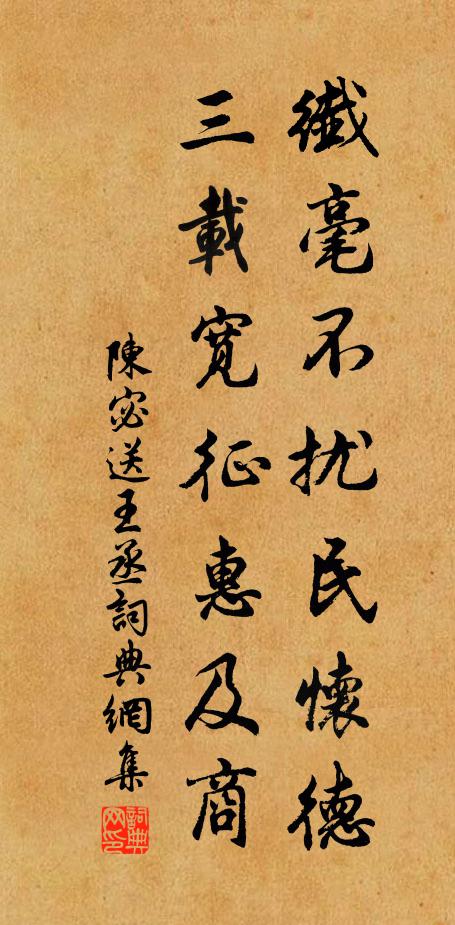 纖毫不扰民懷德
三載宽征惠及商
陳宓送王丞詞典網集
詞典网印